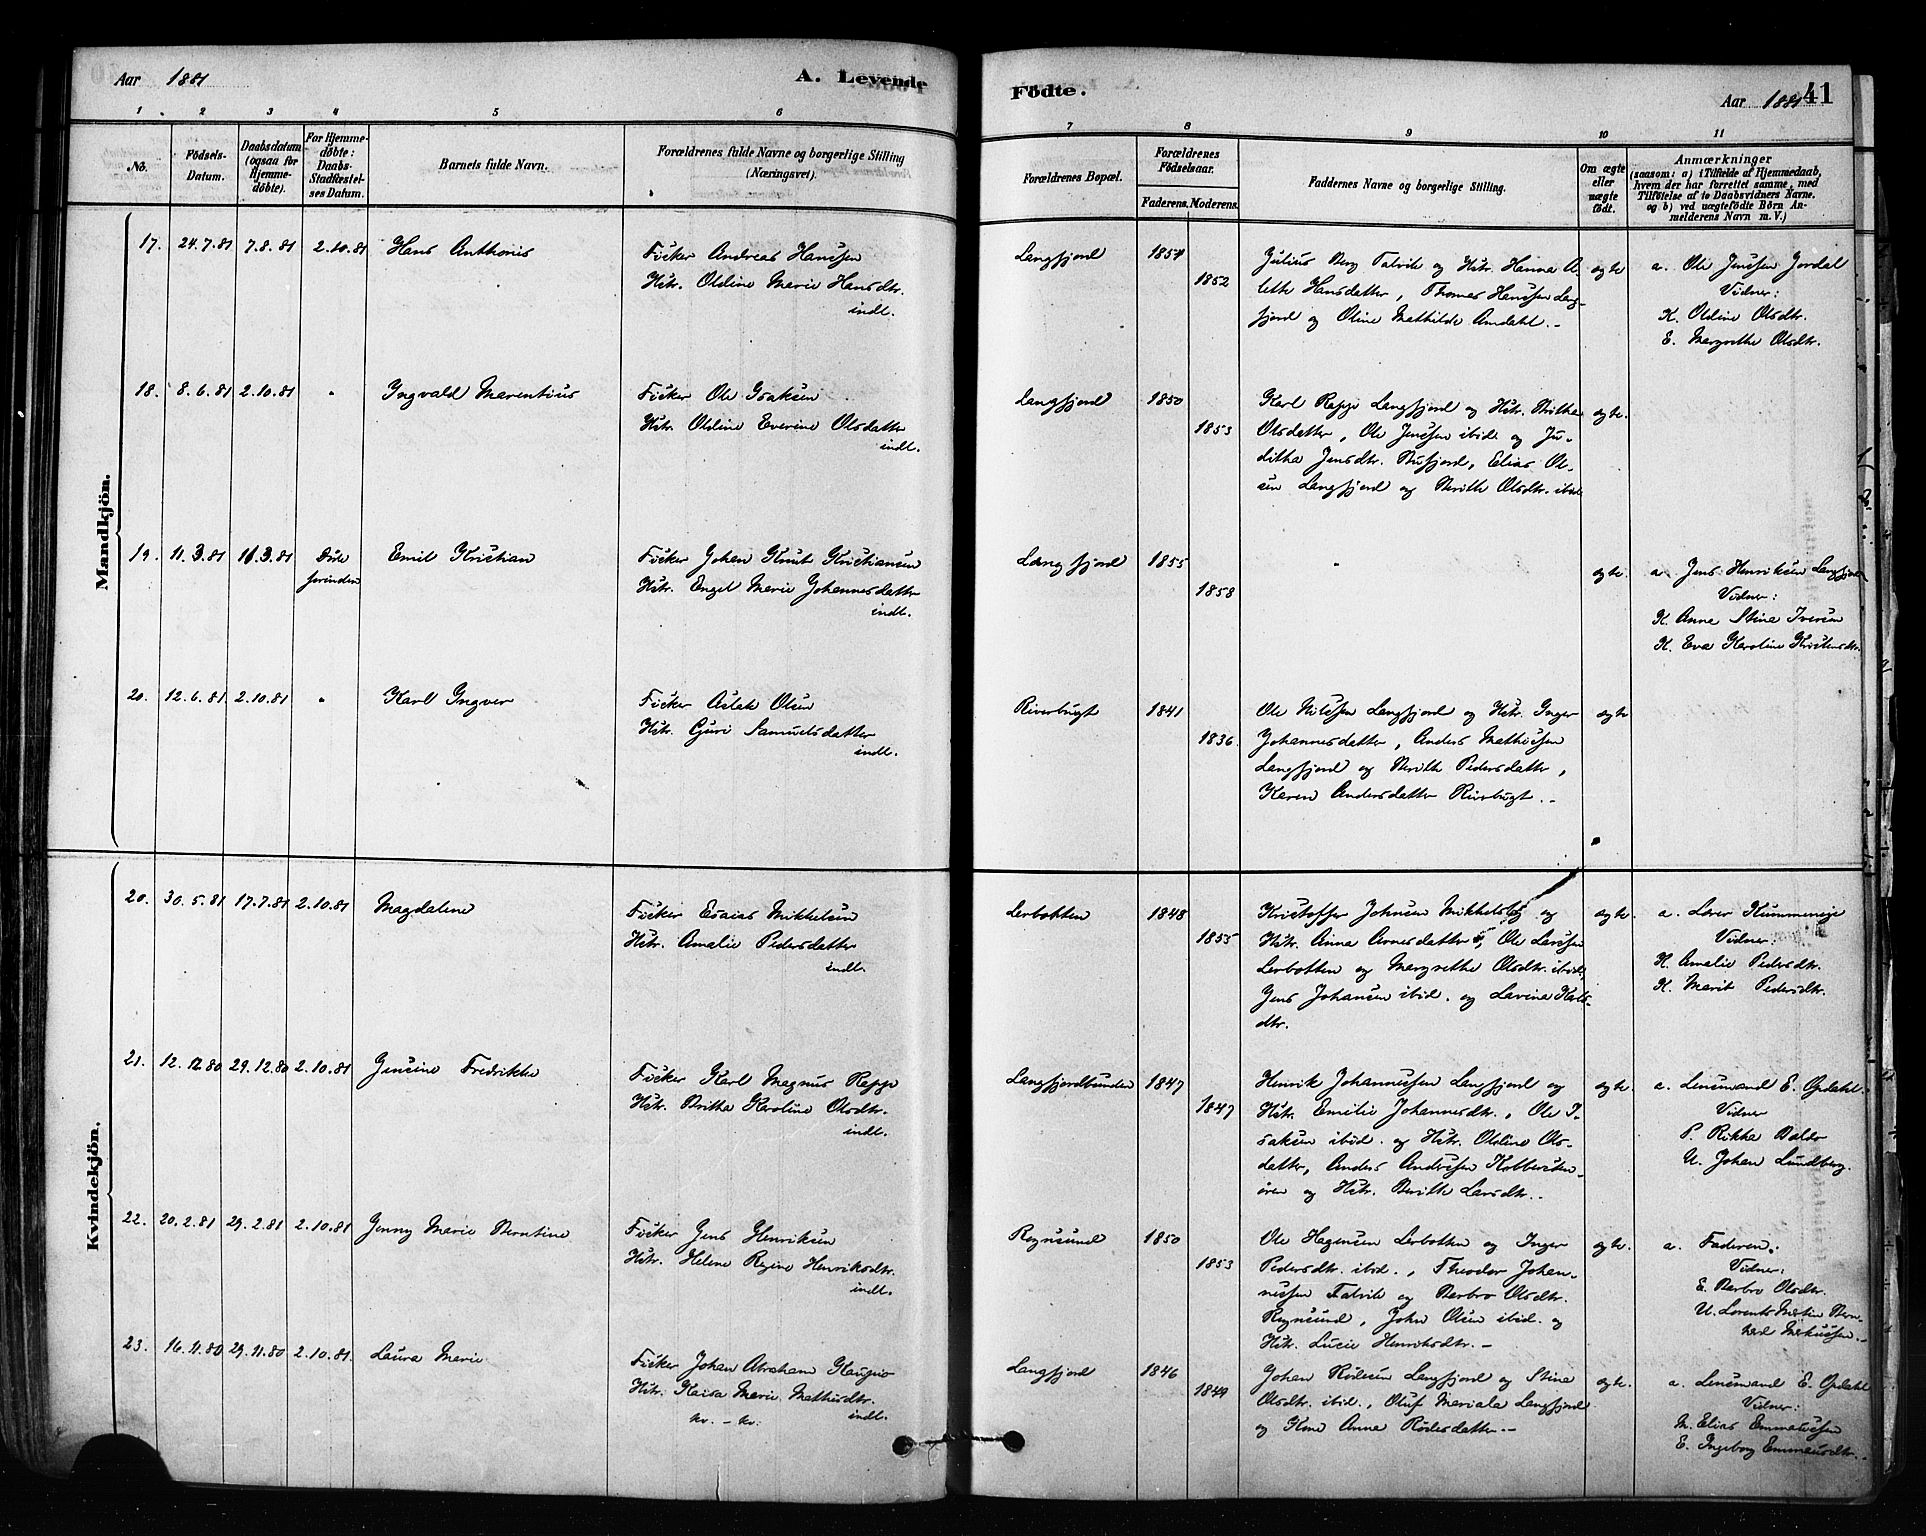 Aar 1881
A. Levende
Födte.
Aar 1881
41
1 2 3 4 5 6
7 8 9 10 11
No.
Födsels-
Datum.
Daabsdatum
(ogsaa for
Hjemme-
döbte).
For Hjemme-
döbte:
Daabs-
Stadfæstel-
ses Datum.
Barnets fulde Navn.
Forældrenes fulde Navne og borgerlige Stilling
(Næringsvei).
Forældrenes Bopæl.
Forældrenes
Födselsaar.
Faderens. Moderens.
Faddernes Navne og borgerlige Stilling.
Om ægte
eller
uægte
födt.
Anmærkninger
(saasom: a) i Tilfælde af Hjemmedaab,
hvem der har forrettet samme, med
Tilföielse af to Daabsvidners Navne,
og b) ved uægtefödte Börn An-
melderens Navn m. V.)
Mandkjön.
17. 24.7.81 7.8.81 2.10.81 Hans Anthonis
Fisker Andreas Hanssen
Hstr. Oldine Marie Hansdtr.
indl.
Langfjord 1854
1852
Julius Berg Talvik og Hstr. Hanna A-
lette Hansdatter, Thomas Hanssen Lang-
fjord og Oline Mathilde Amdahl. -
ægte
a. Ole Jenssen Jordal
Vidner:
K. Oldine Olsdtr.
E. Margrethe Olsdtr.
18. 8.6.81 2.10.81 " Ingvald Marentius
Fisker Ole Isaksen
Hstr. Oldine Everine Olsdatter
indl.
Langfjord 1850
1853
Karl Rappe Langfjord og Hstr. Britha
Olsdatter, Ole Jenssen ibid og Ju-
ditha Jensdtr. Bufjord, Elias Ol-
sen Langfjord og Berith Olsdtr. ibid
ægte.
19. 11.3.81 11.3.81 Døde
forinden
Emil Kristian
Fisker Johan Knut Kristiansen
Hstr. Engel Marie Johannesdatter
indl.
Langfjord 1855
1858
"
ægte.
a. Jens Henriksen Langfjord
Vidner:
K. Anne Stine Iversen
K. Eva Karoline Kristensdtr.
20. 12.6.81 2.10.81 " Karl Ingver
Fisker Aslak Olsen
Hstr. Guri Samuelsdatter
indl.
Riverbugt 1841
1836.
Ole Nilssen Langfjord og Hstr. Inger
Johannesdatter, Anders Mathissen
Langfjord og Berith Pedersdatter,
Karen Andersdatter Riverbugt. -
ægte
Kvindekjön.
20. 30.5.81 17.7.81 2.10.81 Magdalene
Fisker Esaias Mikkelsen
Hstr. Amalie Pedersdatter
indl.
Lerbotten 1848
1855
Kristoffer Johnsen Mikkelsby og
Hstr. Anna Arnesdatter, Ole Larssen
Lerbotten og Margrethe Olsdtr. ibid,
Jens Johansen ibid. og Lavina Karls-
dtr.
ægte.
a. Lærer Kummeneje
Vidner:
K. Amalie Pedersdtr.
K. Marit Pedersdtr.
21. 12.12.80 29.12.80 2.10.81 Jensine Fredrikke
Fisker Karl Magnus Rappe
Hstr. Britha Karoline Olsdtr.
indl.
Langfjordbunden 1847
1847
Henrik Johannessen Langfjord og
Hstr. Emilie Johannesdtr., Ole I-
saksen ibid. og Hstr. Oldine Ols-
datter, Anders Andersen Kobbersten-
øren og Hstr. Berith Larsdtr. -
ægte.
a. Lensmand E. Opdahl.
Vidner
P. Rikka Balder
U. Johan Lundberg.
22. 20.2.81 29.2.81 2.10.81 Jenny Marie Berntine
Fisker Jens Henriksen
Hstr. Helene Regine Henriksdtr.
indl.
Rognsund 1850
1853
Ole Hagensen Lerbotten og Inger
Pedersdtr. ibid., Theodor Johan-
nessen Talvik og Barbro Olsdtr.
Rognsund, John Olsen ibid. og
Hstr. Lucie Henriksdtr. -
ægte.
a. Faderen.
Vidner:
E. Barbro Olsdtr.
U. Lorents Martin Bern-
hard Markussen. -
23. 16.11.80 29.11.80 2.10.81. Laura Marie
Fisker Johan Abraham Kaupio
Hstr. Kaisa Marie Mathisdtr.
kv. - kv. indl.
Langfjord 1846
1849
Johan Rødesen Langfjord og Stina
Olsdtr. ibid., Oluf Mariala Langfjord
og Kone Anna Rødesdatter. -
ægte.
a. Lensmand E. Opdahl
Vidner:
M. Elias Emmaussen
E. Ingeborg Emmausdtr. -